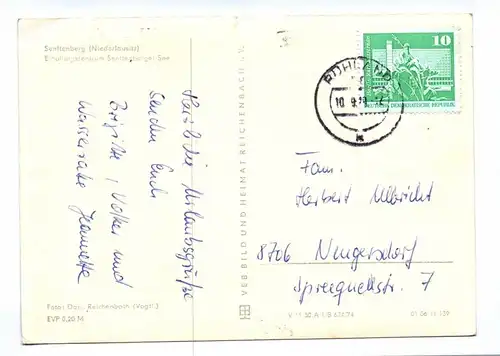 Senftenberg (Niederlausitz)
Erholungszentrum Senftenberger See
Herzliche Urlaubsgrüße
senden Euch
Brigitte, Volker und
Wasserratte Jeannette
Foto: Darr, Reichenbach (Vogtl.)
EVP 0,20 M
VEB BILD UND HEIMAT REICHENBACH i. V.
10
DEUTSCHE DEMOKRATISCHE REPUBLIK
RUHLAND
10.9.
Fam.
Herbert Ulbricht
8706 Neugersdorf
Spreequellstr. 7
01 06 14 129